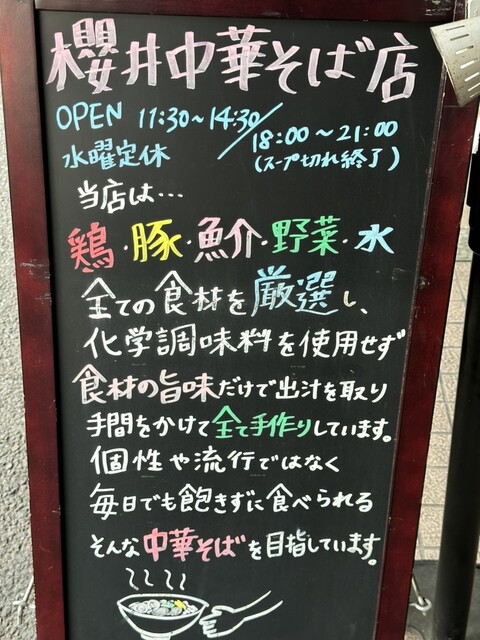 櫻井中華そば店
OPEN 11:30～14:30/18:00～21:00
水曜定休 (スープ切れ終了)
当店は…
鶏・豚・魚介・野菜・水
全ての食材を厳選し、
化学調味料を使用せず
食材の旨味だけで出汁を取り
手間をかけて全て手作りしています。
個性や流行ではなく
毎日でも飽きずに食べられる
そんな中華そばを目指しています。